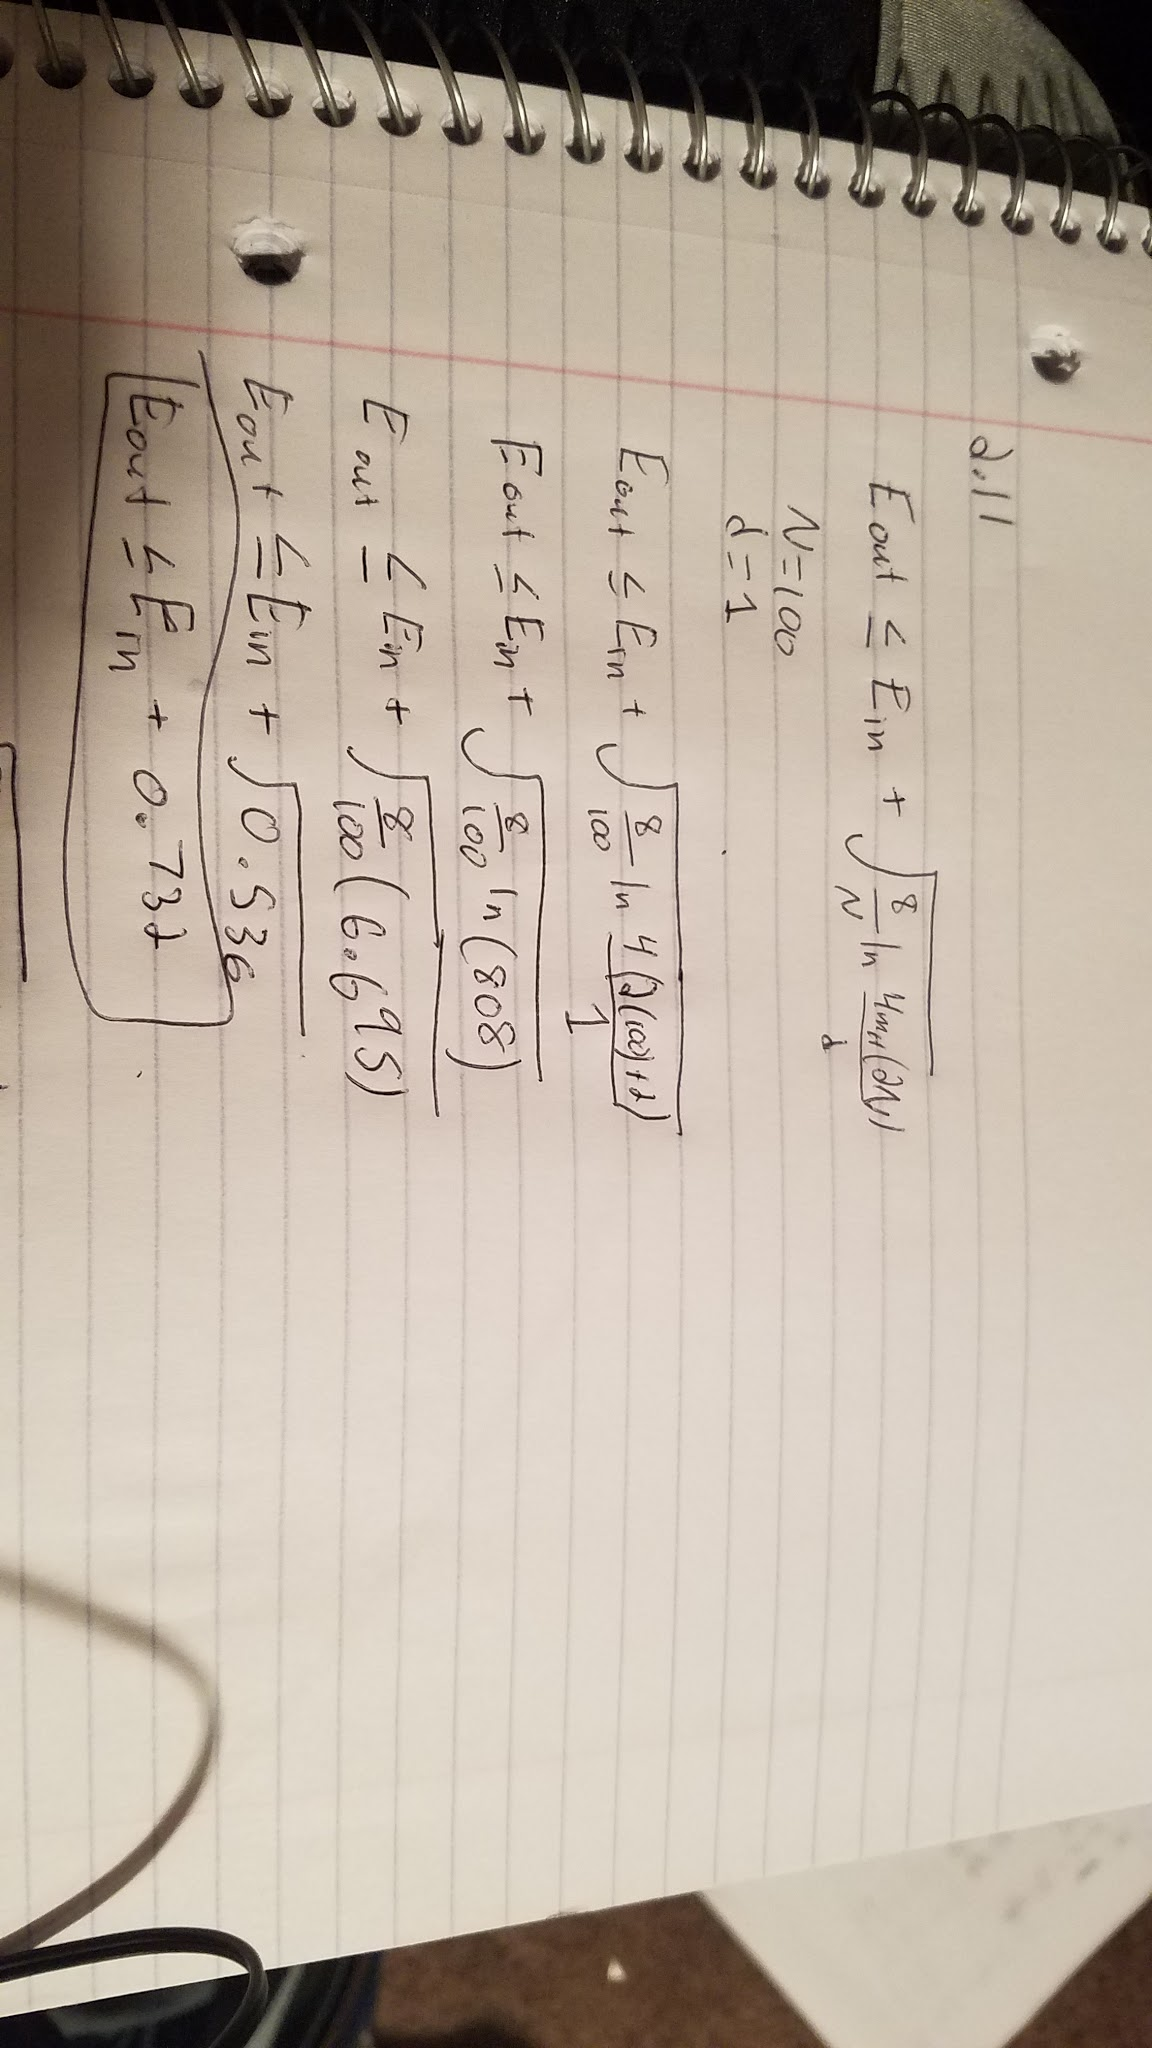 2.11
Eout ≤ Ein + √(8/N ln 4mH(2N)/d)
N=100
d=1
Eout ≤ Ein + √(8/100 ln 4(2(100)+2)/1)
Eout ≤ Ein + √(8/100 ln(808))
Eout ≤ Ein + √(8/100 (6.695))
Eout ≤ Ein + √0.536
Eout ≤ Ein + 0.732